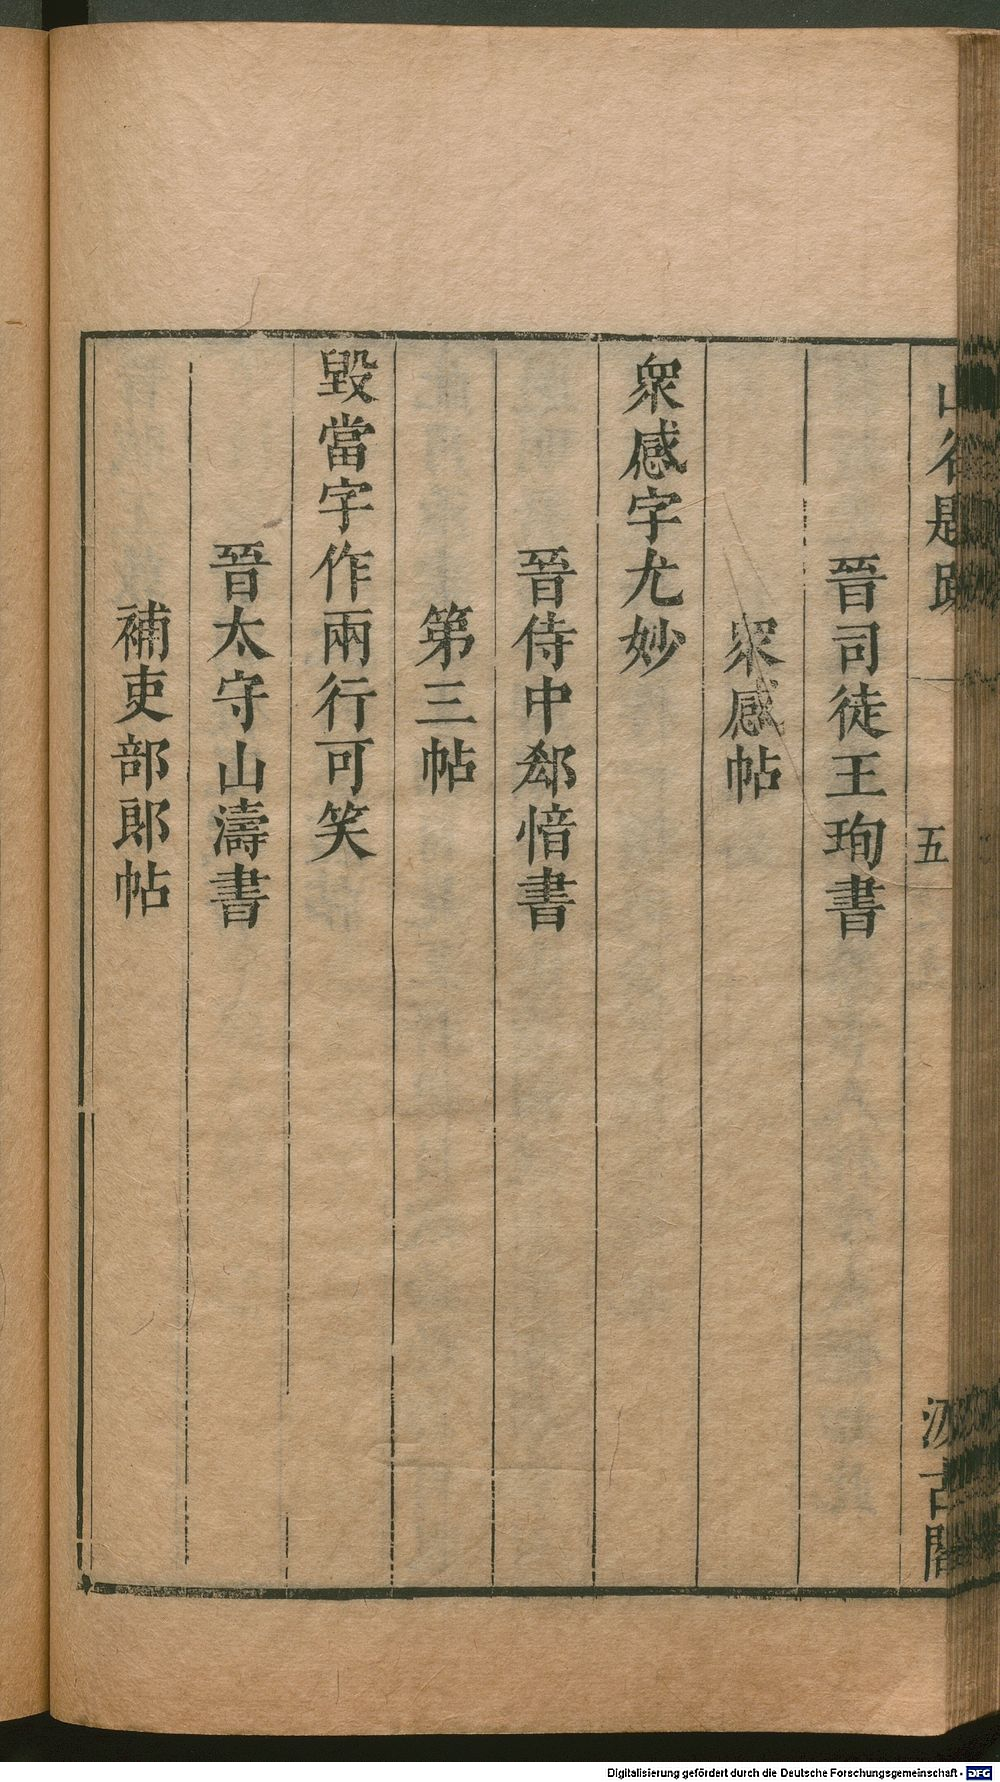 山谷題跋
五
汲古閣
晉司徒王珣書
衆感帖
衆感字尤妙
晉侍中郗愔書
第三帖
毀當字作兩行可笑
晉太守山濤書
補吏部郎帖
Digitalisierung gefördert durch die Deutsche Forschungsgemeinschaft - DFG